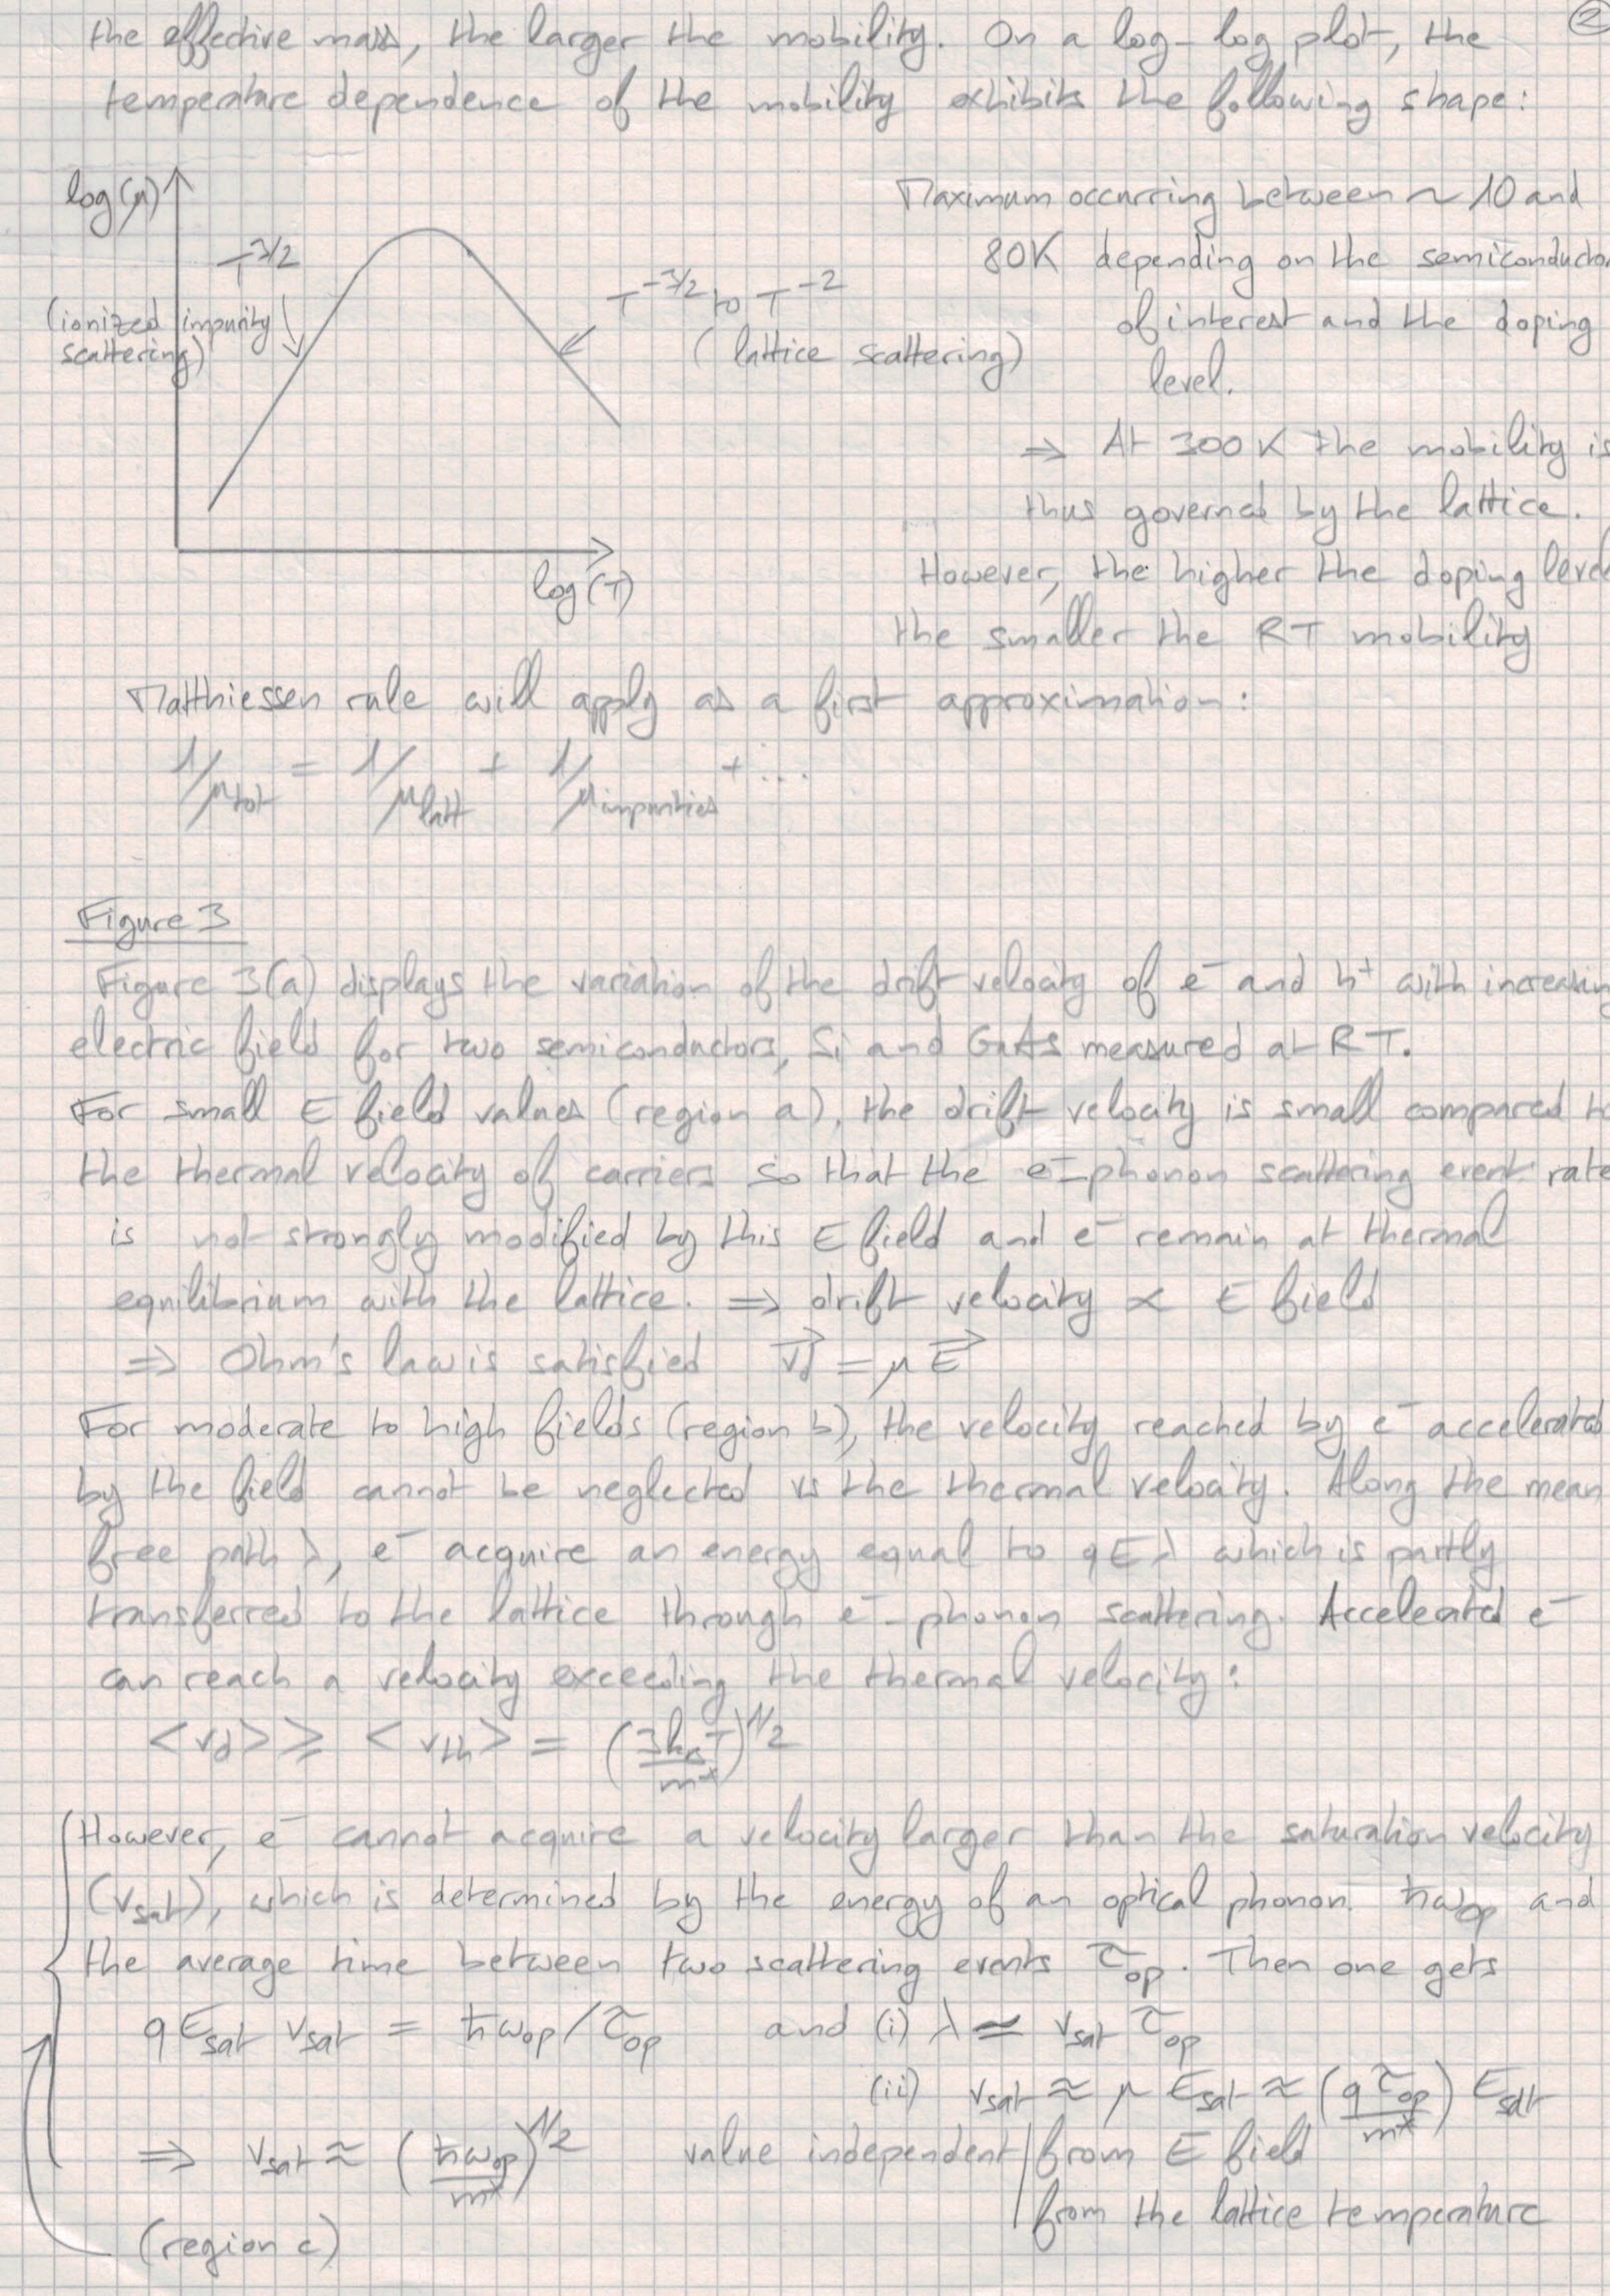 ②
the effective mass, the larger the mobility. On a log-log plot, the
temperature dependence of the mobility exhibits the following shape:
log(μ)
T^3/2
(ionized impurity
scattering)
T^-3/2 to T^-2
(lattice scattering)
log(T)
Maximum occurring between ~ 10 and
80K depending on the semiconductor
of interest and the doping
level.
⇒ At 300 K the mobility is
thus governed by the lattice.
However, the higher the doping level
the smaller the RT mobility
Matthiessen rule will apply as a first approximation:
1/μtot = 1/μlatt + 1/μimpurities + ...
Figure 3
Figure 3(a) displays the variation of the drift velocity of e⁻ and h⁺ with increasing
electric field for two semiconductors, Si and GaAs measured at RT.
For small E field values (region a), the drift velocity is small compared to
the thermal velocity of carriers so that the e⁻-phonon scattering event rate
is not strongly modified by this E field and e⁻ remain at thermal
equilibrium with the lattice. ⇒ drift velocity ∝ E field
⇒ Ohm's law is satisfied v⃗d = μ E⃗
For moderate to high fields (region b), the velocity reached by e⁻ accelerated
by the field cannot be neglected vs the thermal velocity. Along the mean
free path λ, e⁻ acquire an energy equal to qEλ which is partly
transferred to the lattice through e⁻-phonon scattering. Accelerated e⁻
can reach a velocity exceeding the thermal velocity:
<vd> ≥ <vth> = (3kBT/m*)^1/2
However, e⁻ cannot acquire a velocity larger than the saturation velocity
(vsat), which is determined by the energy of an optical phonon ħωop and
the average time between two scattering events τop. Then one gets
qEsat vsat = ħωop/τop and (i) λ ≃ vsat τop
(ii) vsat ≈ μ Esat ≈ (qτop/m*) Esat
⇒ vsat ≈ (ħωop/m*)^1/2 value independent from E field
from the lattice temperature
(region c)